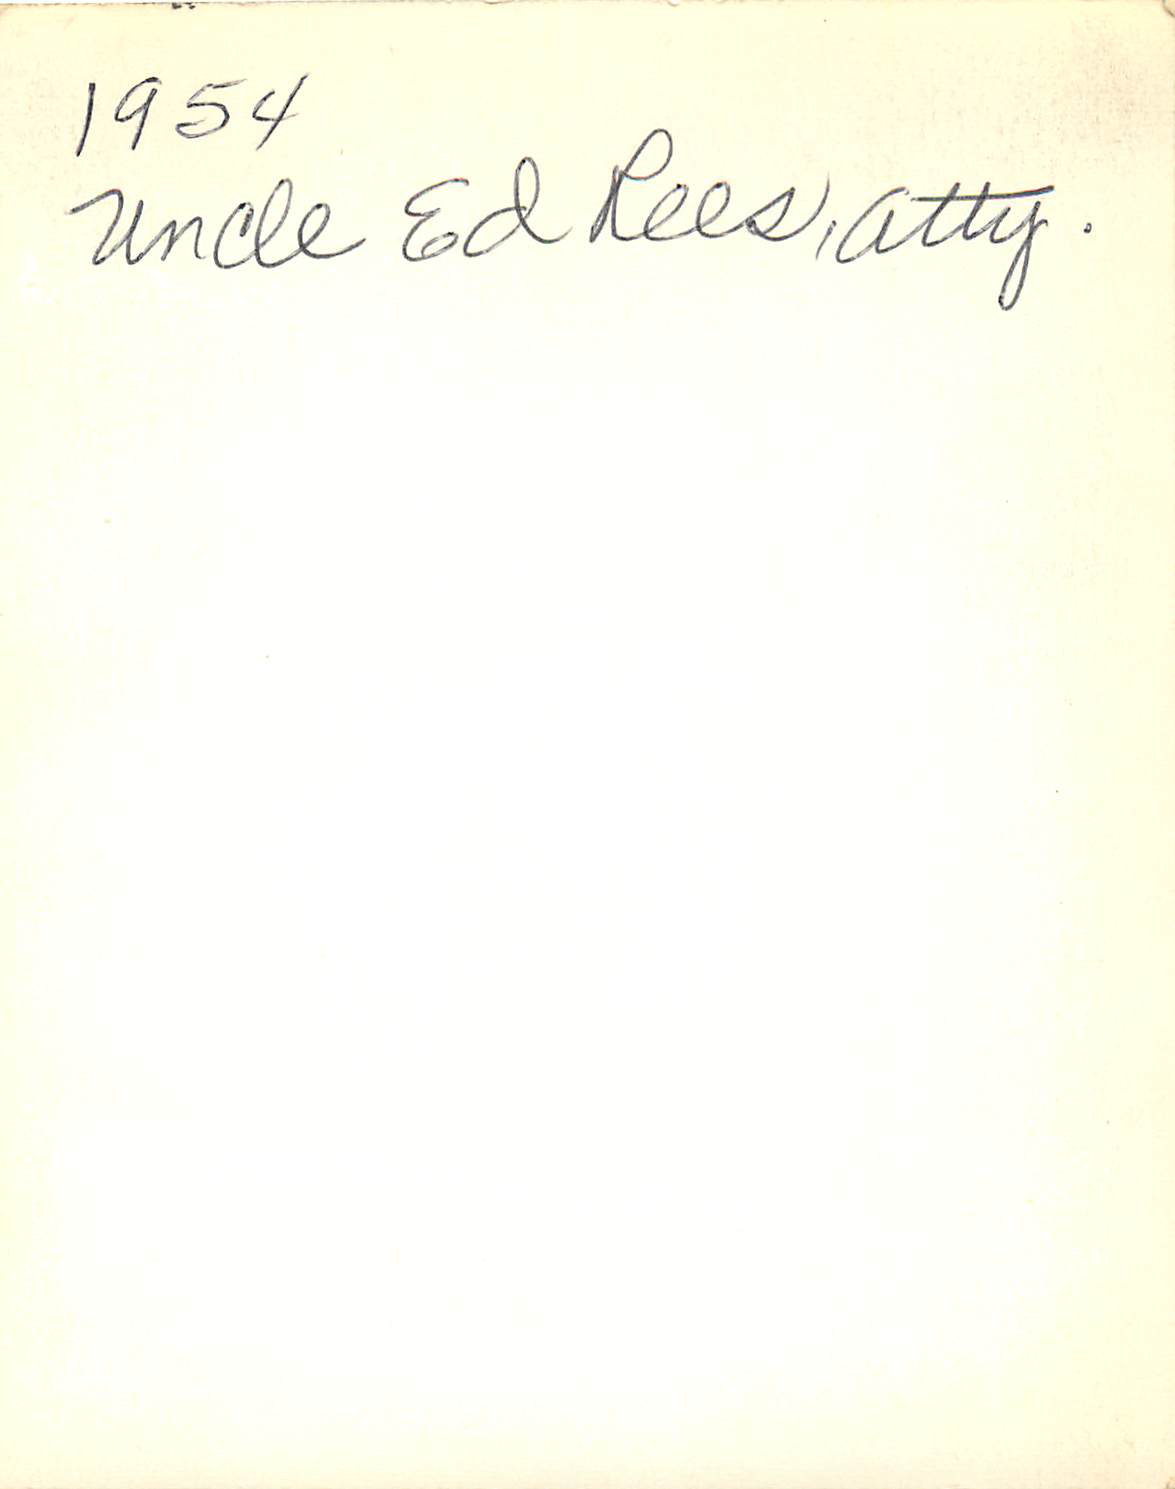 1954
Uncle Ed Rees, Atty.